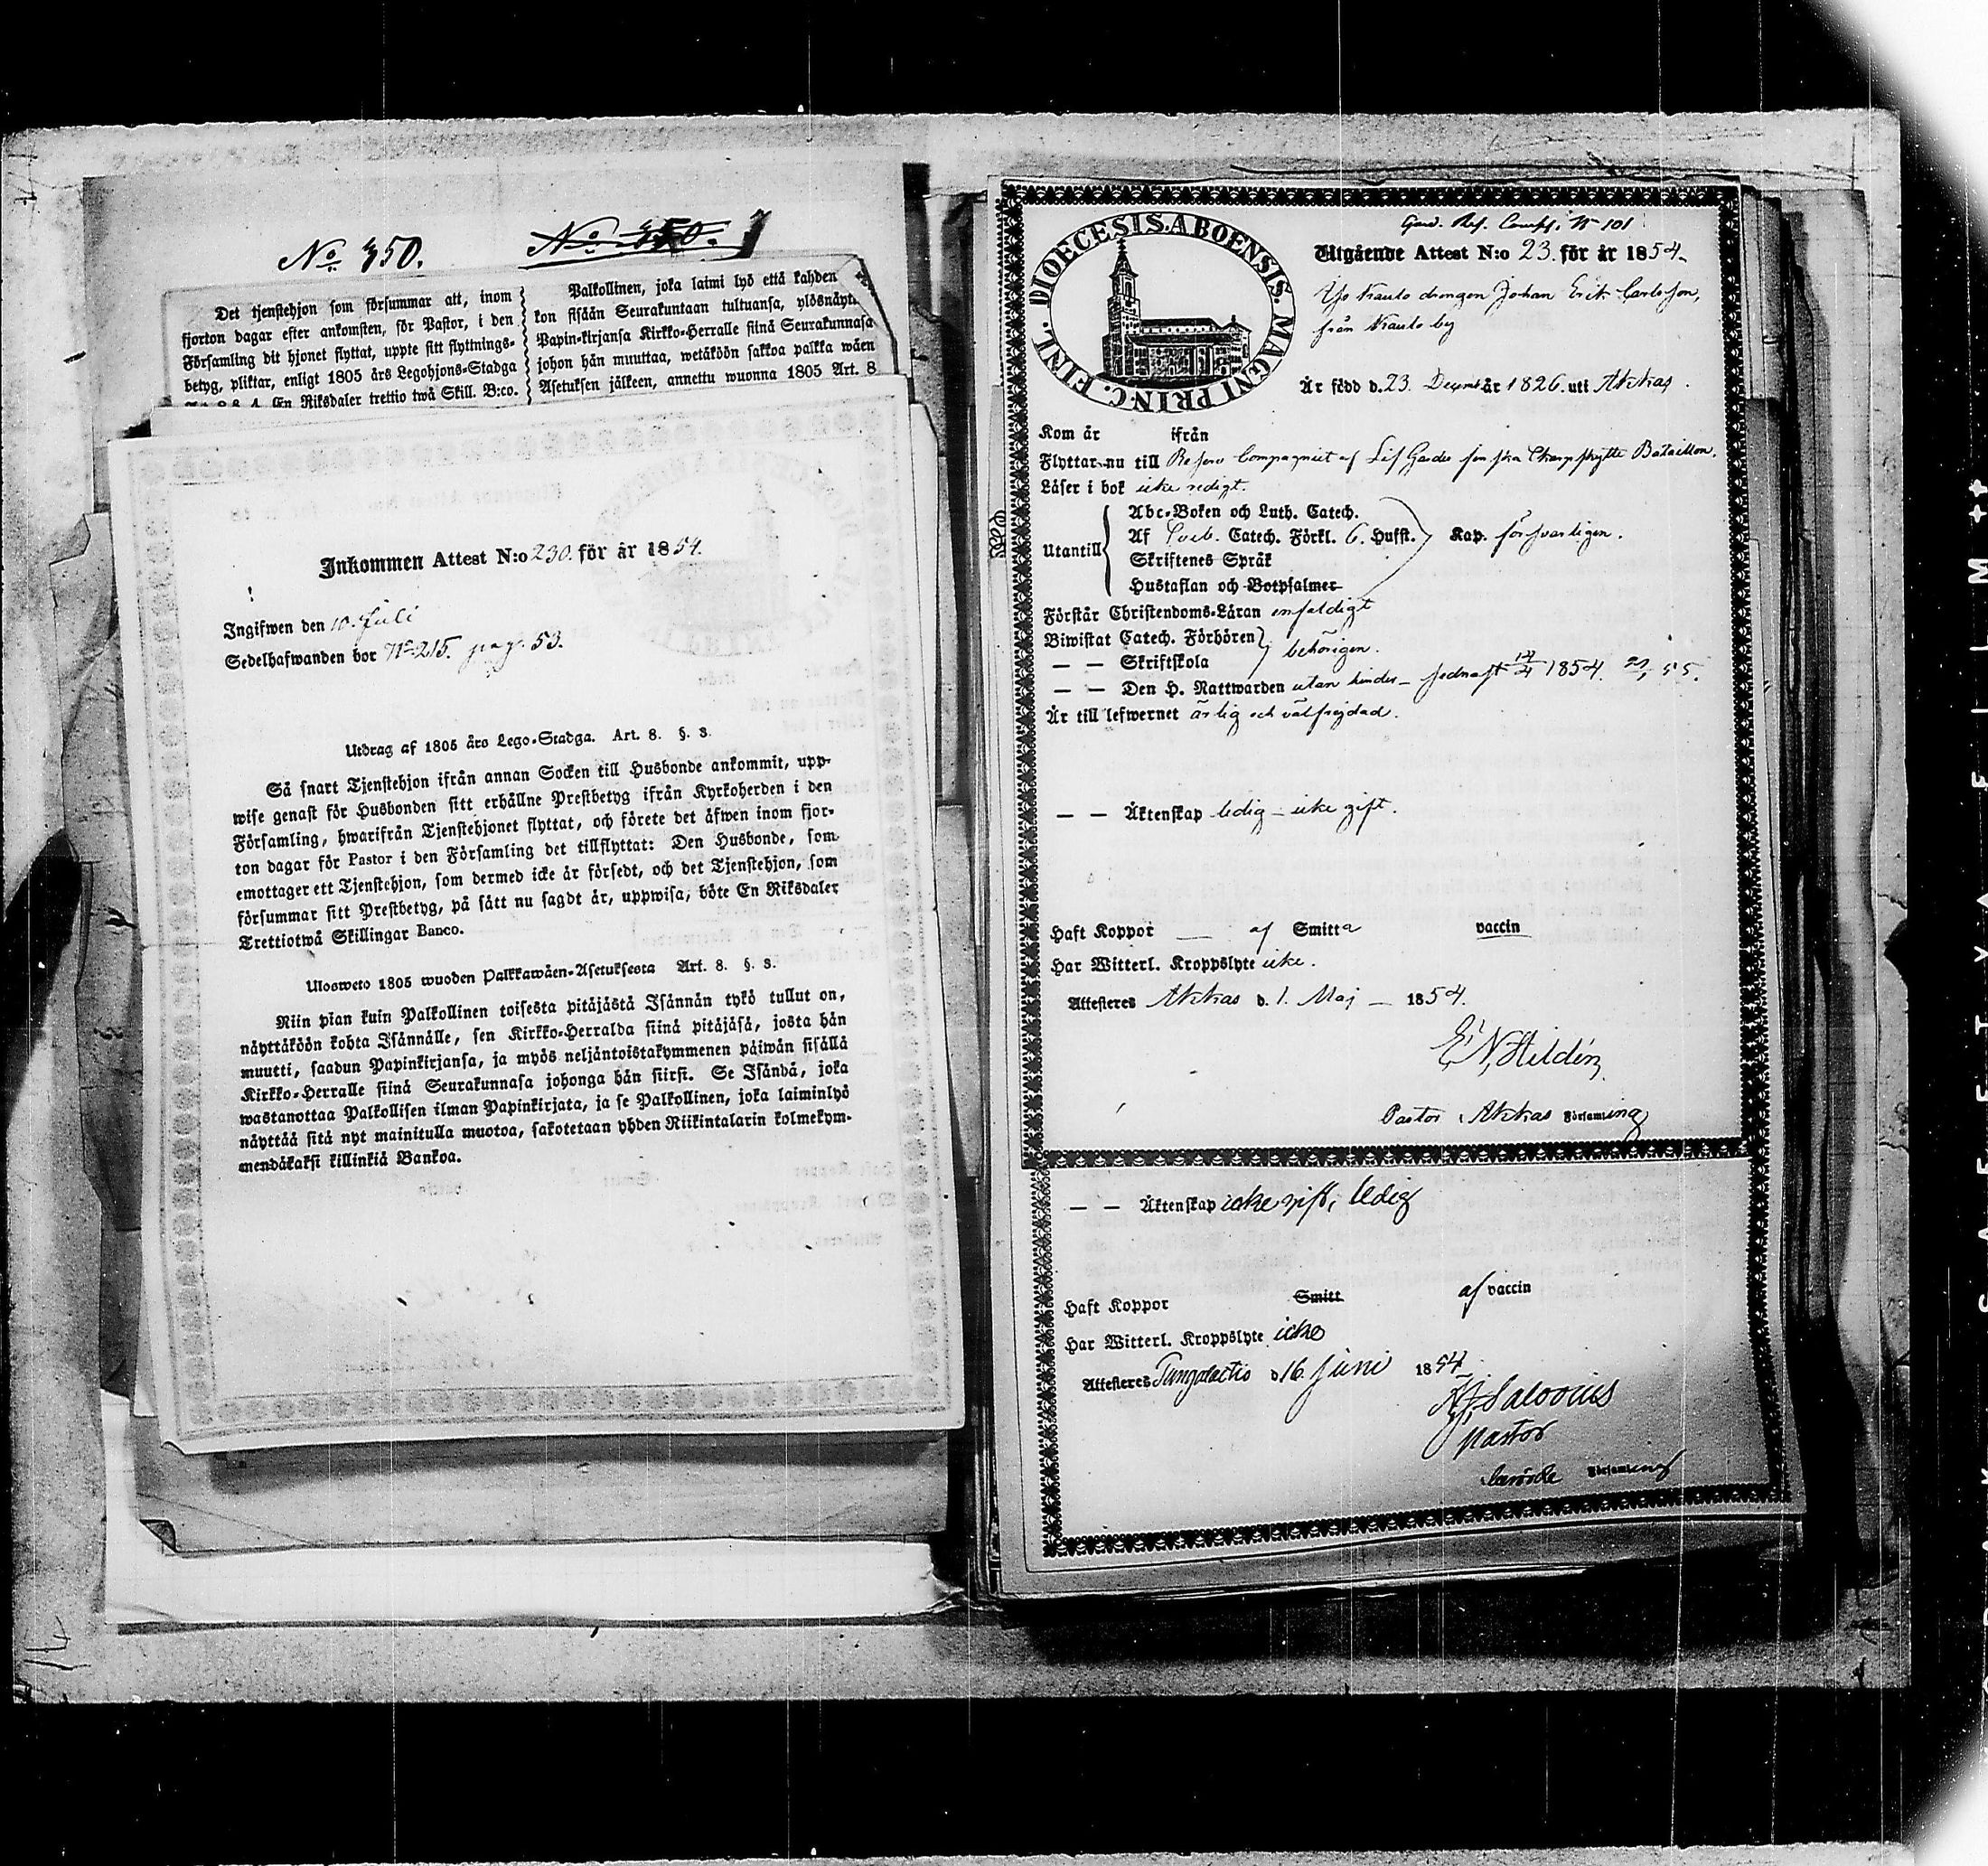 No. 350.
No. 350.
Det tjenstehjon som försummar att, inom
fjorton dagar efter ankomsten, för Pastor, i den
Församling dit hjonet flyttat, uppte sitt flyttnings-
betyg, pliktar, enligt 1805 års Legohjons-Stadga
En Riksdaler trettio twå Skill. B:co.
Palkollinen, joka laimi lyö että kahden
kon sisään Seurakuntaan tultuansa, ylösnäyt
Papin-kirjansa Kirkko-Herralle siinä Seurakunnasa
johon hän muuttaa, wetäköön sakkoa palkka wäen
Asetuksen jälkeen, annettu wuonna 1805 Art. 8
Inkommen Attest N:o 230. för år 1854.
Ingifwen den 10. Juli
Sedelhafwanden bor No 215. pag. 53.
Utdrag af 1805 års Lego-Stadga. Art. 8. §. 3.
Så snart Tjenstehjon ifrån annan Socken till Husbonde ankommit, upp-
wise genast för Husbonden sitt erhållne Prestbetyg ifrån Kyrkoherden i den
Församling, hwarifrån Tjenstehjonet flyttat, och förete det äfwen inom fjor-
ton dagar för Pastor i den Församling det tillflyttat: Den Husbonde, som
emottager ett Tjenstehjon, som dermed icke är försedt, och det Tjenstehjon, som
försummar sitt Prestbetyg, på sått nu sagdt är, uppwisa, böte En Riksdaler
Trettiotwå Skillingar Banco.
Ulosweto 1805 wuoden Palkkawäen-Asetuksesta Art. 8. §. 3.
Niin pian kuin Palkollinen toisesta pitäjästä Isännän tykö tullut on,
näyttäköön kohta Isännälle, sen Kirkko-Herralda siinä pitäjäsä, josta hän
muutti, saadun Papinkirjansa, ja myös neljäntoistakymmenen päiwän sisällä
Kirkko-Herralle siinä Seurakunnasa johonga hän siirsi. Se Isändä, joka
wastanottaa Palkollisen ilman Papinkirjata, ja se Palkollinen, joka laiminlyö
näyttää sitä nyt mainitulla muotoa, sakotetaan yhden Riikintalarin kolmekym-
mendäkaksi killinkiä Bankoa.
DIOECESIS ABOENSIS. MAGNI PRINC. FINL.
Gard. Res. Comp. No 101
Utgående Attest N:o 23. för år 1854.
drengen Johan Erik Carlsson,
från Nauto by
Är född d. 23. Decemb. år 1826. uti Akkas.
Kom år ifrån
Flyttar nu till Reserv Compagniet af Lif Gardes finska Skarpskytte Bataillon.
Läser i bok icke redigt.
Utantill
Abc-Boken och Luth. Catech.
Af Sveb. Catech. Förkl. 6. Hufst. Kap. försvarligen.
Skriftenes Språk
Hustaflan och Botpsalmer
Förstår Christendoms-Läran enfaldigt
Biwistat Catech. Förhören behörigen.
— — Skriftskola
— — Den H. Nattwarden utan hinder – sednast 14/4 1854.
Är till lefwernet ärlig och välfrejdad.
— — Äktenskap ledig – icke gift.
Haft Koppor — af Smitta vaccin
Har Witterl. Kroppslyte icke.
Attesteres Akkas d. 1. Maj – 1854.
E. N. Hildén
Pastor i Akkas Församling
— — Äktenskap icke gift, ledig
Haft Koppor Smitt af vaccin
Har Witterl. Kroppslyte icke
Attesteres d 16. Juni 1854
Salovius
Pastor
Församling